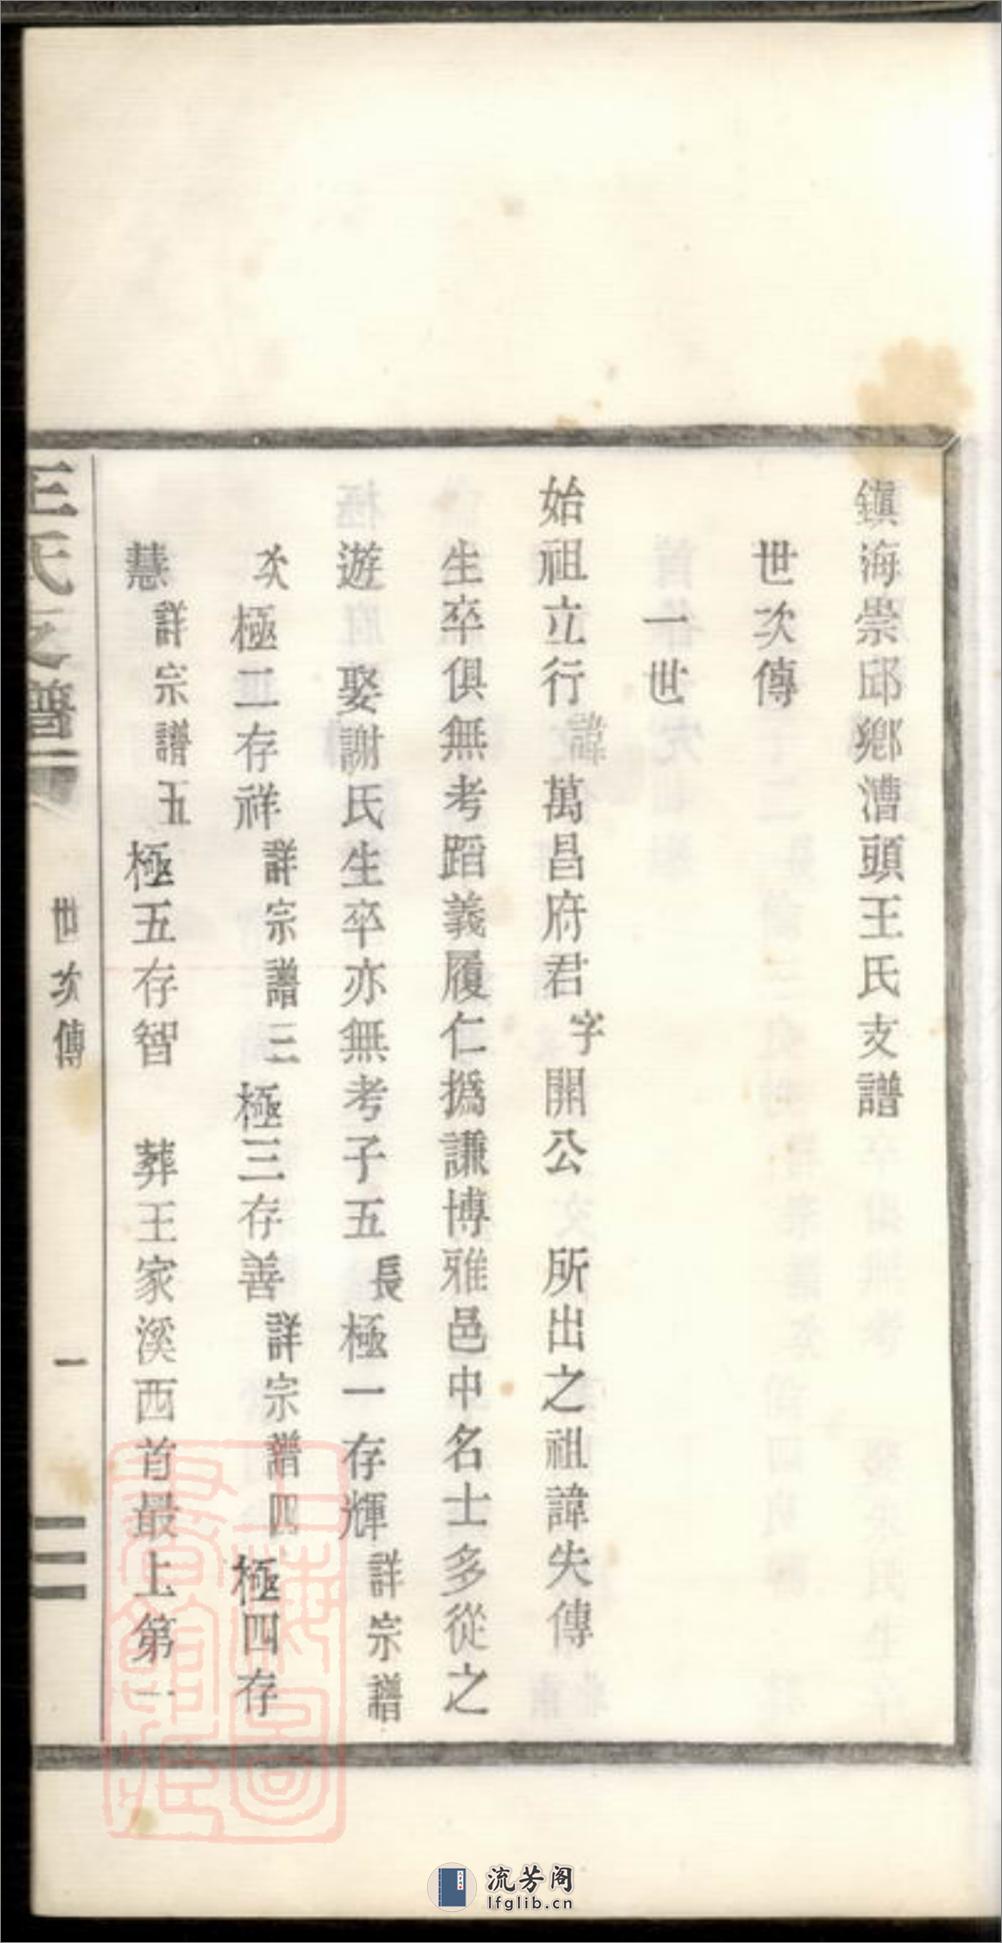 鎮海崇邱鄉漕頭王氏支譜
世次傳
一世
始祖立行端萬昌府君字開公 所出之祖諱失傳
生卒俱無考蹈義履仁撝謙博雅邑中名士多從之
遊 娶謝氏生卒亦無考子五長極一存輝詳宗譜
次極二存祥詳宗譜三極三存善詳宗譜四極四存
慧詳宗譜五極五存智 葬王家溪西首最上第一
王氏支譜 世次傳 一
上海圖書館藏
流芳阁
lfglib.cn